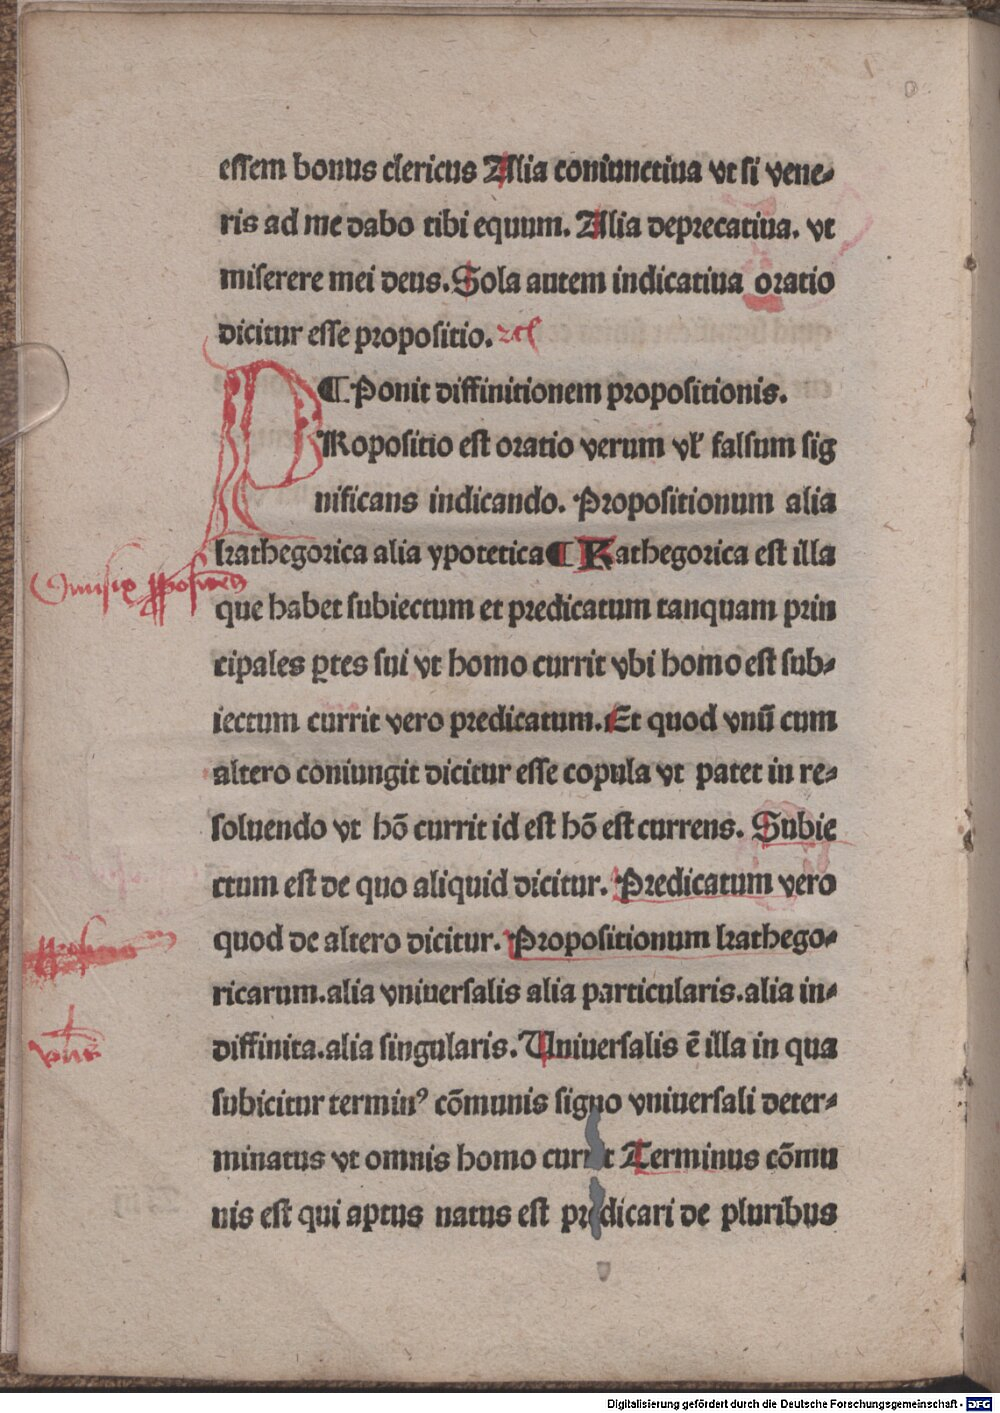 essem bonus clericus Alia coniunctiua vt si vene-
ris ad me dabo tibi equum. Alia deprecatiua. vt
miserere mei deus. Sola autem indicatiua oratio
dicitur esse propositio.
¶ Ponit diffinitionem propositionis.
PRopositio est oratio verum vl' falsum sig
nificans indicando. Propositionum alia
kathegorica alia ypotetica ¶ Kathegorica est illa
que habet subiectum et predicatum tanquam prin
cipales ꝑtes sui vt homo currit vbi homo est sub-
iectum currit vero predicatum. Et quod vnū cum
altero coniungit dicitur esse copula vt patet in re-
soluendo vt hō currit id est hō est currens. Subie
ctum est de quo aliquid dicitur. Predicatum vero
quod de altero dicitur. Propositionum kathego-
ricarum. alia vniuersalis alia particularis. alia in-
diffinita. alia singularis. Uniuersalis ē illa in qua
subicitur terminꝰ cōmunis signo vniuersali deter-
minatus vt omnis homo currit Terminus cōmu
nis est qui aptus natus est predicari de pluribus
Digitalisierung gefördert durch die Deutsche Forschungsgemeinschaft - DFG